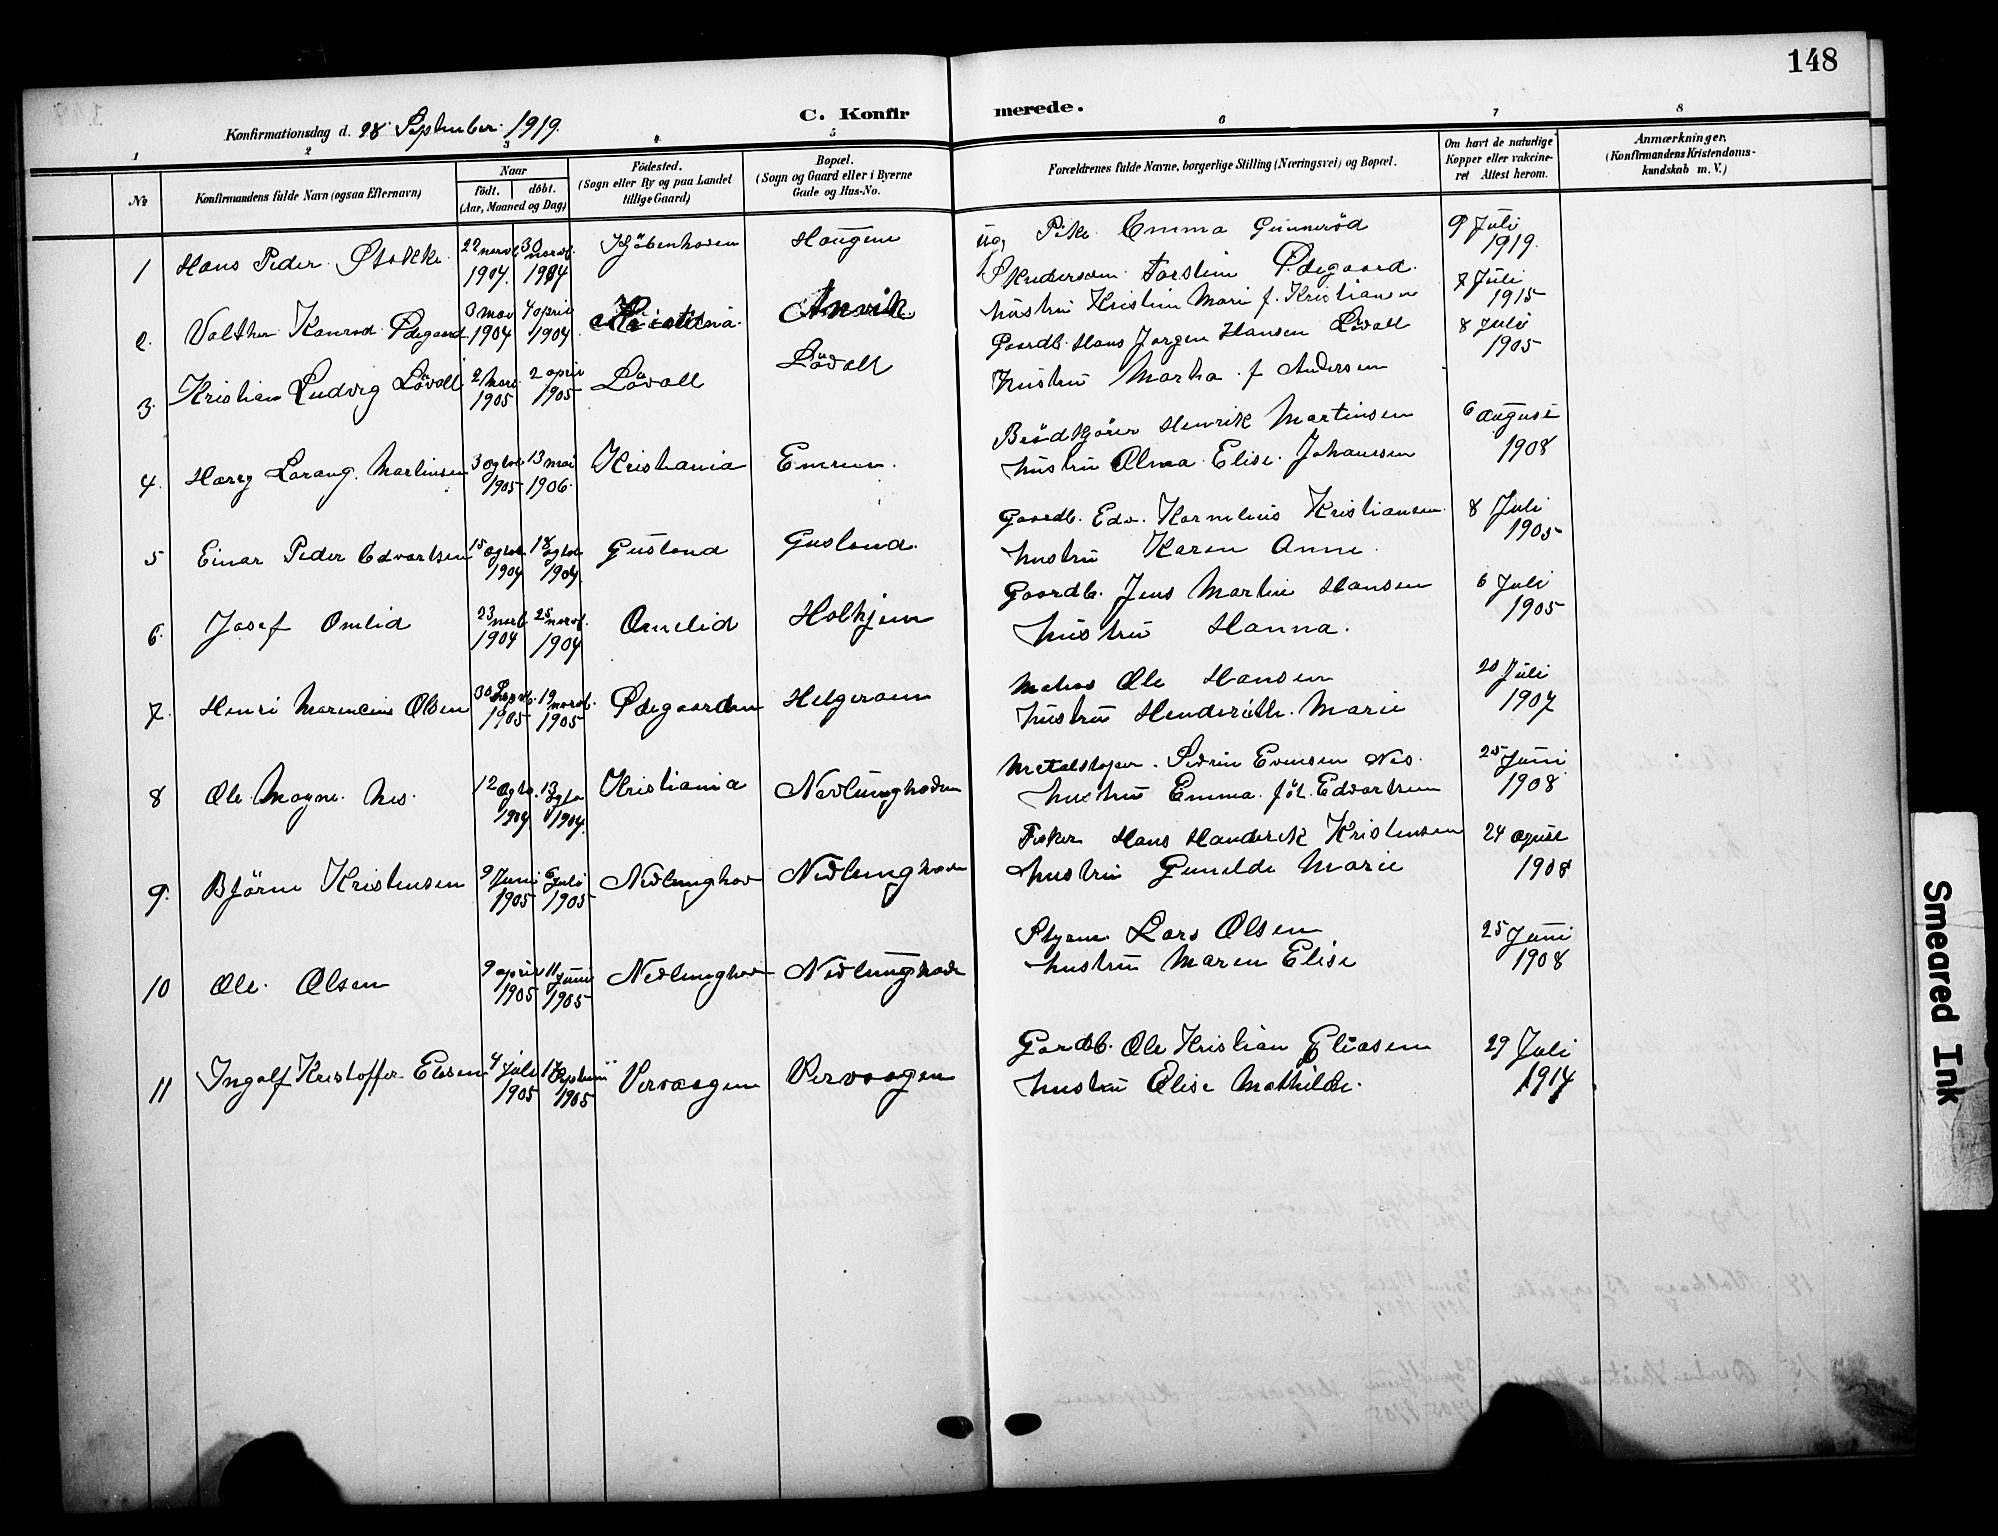 148
Konfirmationsdag d. 28 September 1919.
C. Konfirmerede.
1 2 3 4 5 6 7 8
№
Konfirmandens fulde Navn (ogsaa Efternavn)
Naar
födt. döbt.
(Aar, Maaned og Dag)
Födested.
(Sogn eller By og paa Landet
tillige Gaard)
Bopæl.
(Sogn og Gaard eller i Byerne
Gade og Hus-No.
Forældrenes fulde Navne, borgerlige Stilling (Næringsvei) og Bopæl.
Om havt de naturlige
Kopper eller vakcine-
ret Attest herom.
Anmærkninger.
(Konfirmandens Kristendoms-
kundskab m. V.)
1 Hans Peder Stokke 22 novb 1904. 30 novb. 1904 Kjöbenhaven Haugene
ug. Pike Emma Gunnerød 9 Juli 1919.
2. Valther Konrad Ødegaard 1904 4 april 1904 Kristiania Anvik
Torstein Ødegaard.
hustru Kristine Mari f. Kristiansen 7 Juli 1915
3. Kristian Ludvig Lövall 2 1905 2 april 1905 Lövall Lövall
Gaardb. Hans Jørgen Hansen Lövall
hustru Martha f Andersen 8 Juli 1905
4. Harry Lorang. Martinsen 3 ogtob 1905 13 mai 1906. Kristiania
Brödkjører Henrik Martinsen
hustru Alma Elise. Johansen 6 august 1908
5 Einar Peder Edvartsen 15 ogtob 1904 18 ogtob 1904. Gusland Gusland.
Gaardb. Edv. Kornelius Kristiansen
hustru Karen Anne. 8 Juli 1905
6. Josef Omlid 23 novb. 1904 25 novb. 1904 Omelid Holkjem
Gaardb. Jens Martin Hansen
hustru Hanna. 6 Juli 1905
7. Henri Olsen 30 1905 19 novb. 1905 Ødegaarden Helgeraen
Matros Ole Hansen
hustru Marie 20 Juli 1907
8 Ole. Magne. Nes. 12 ogtb. 1904 13 ogtb 1904. Kristiania Nevlunghavn
Evensen Nes.
hustru Emma föt. Edvartsen 25 Juni 1908
9. Björne Kristensen 9 Juni 1905 6 Juli 1905 Nevlunghav Nevlunghavn
Fisker Hans Henderik Kristensen
hustru Gunelde Marie 24 april 1908
10 Ole. Olsen 9 april 1905 11 Juni 1905 Nevlunghav Nevlunghavn
Styrm. Lars Olsen
hustru Maren Elise 25 Juni 1908
11 Ingolf Kristoffer 4 Juli 1905 1905 Vervaagen Vervaagen
Gardb. Ole Kristian Eliasen
hustru Elise Mathilde. 29 Juli 1914
Smeared Ink